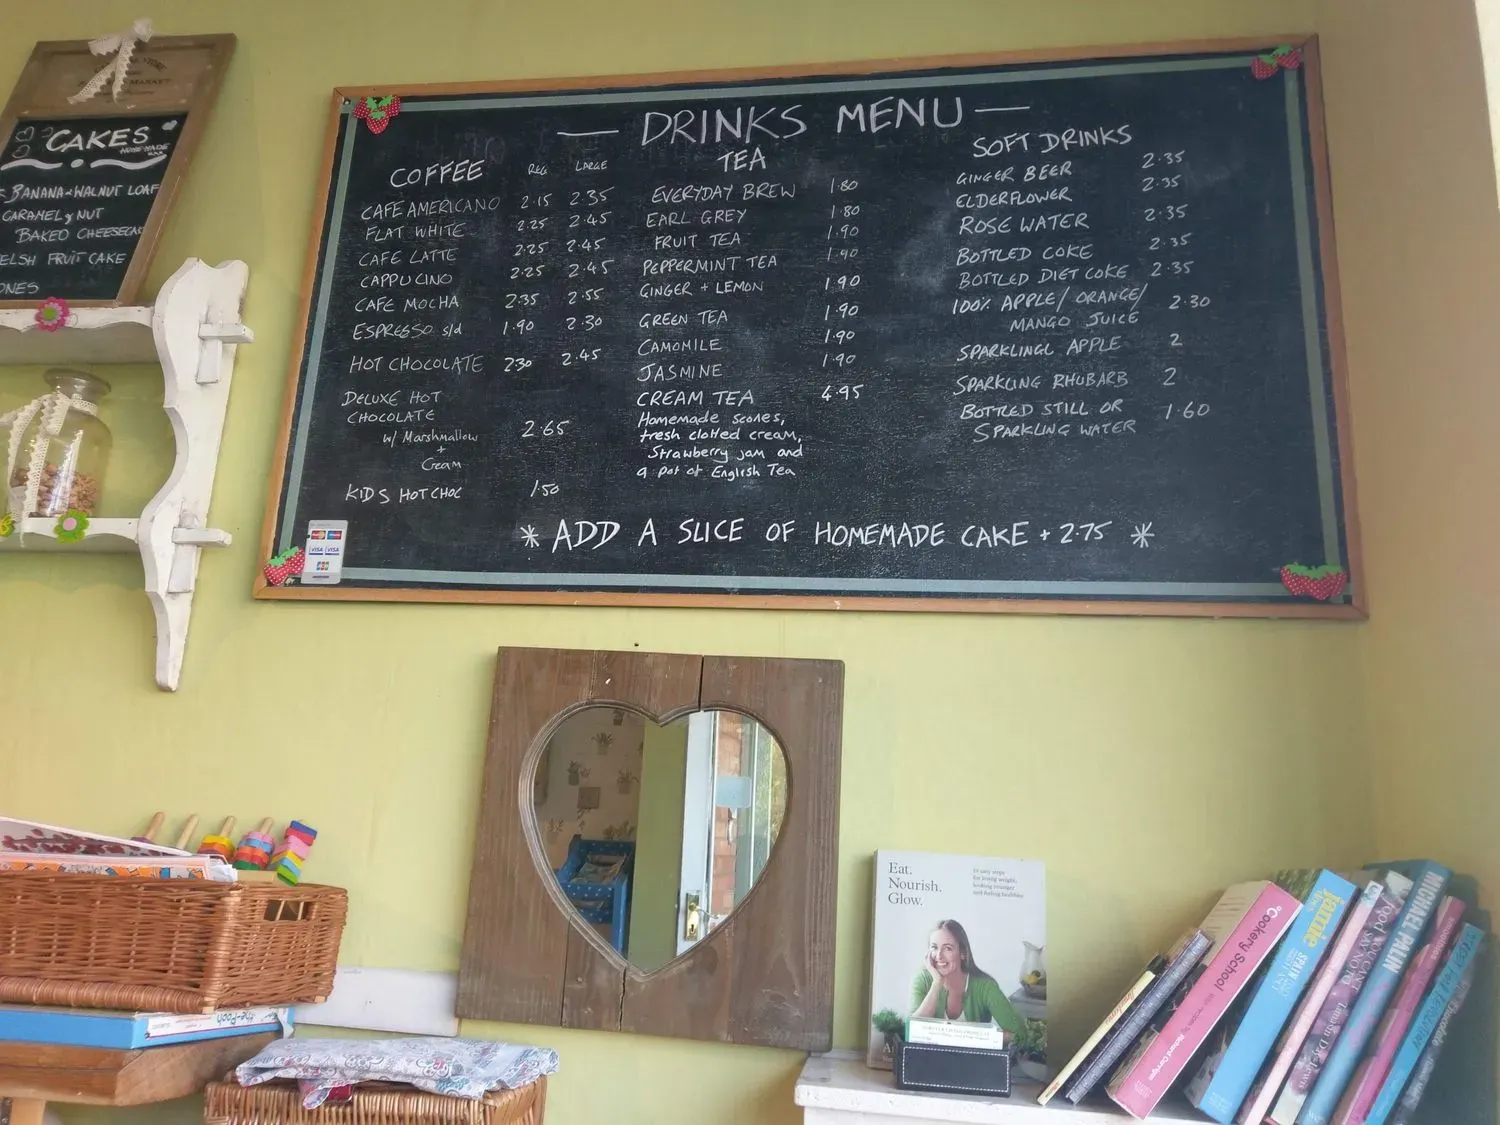 CAKES
HOMEMADE
BANANA & WALNUT LOAF
CARAMEL & NUT
BAKED CHEESECAKE
ELSH FRUIT CAKE
ONES
DRINKS MENU
COFFEE REG LARGE
CAFE AMERICANO 2.15 2.35
FLAT WHITE 2.25 2.45
CAFE LATTE 2.25 2.45
CAPPUCINO 2.25 2.45
CAFE MOCHA 2.35 2.55
ESPRESSO s/d 1.90 2.30
HOT CHOCOLATE 2.30 2.45
DELUXE HOT
CHOCOLATE
w/ Marshmallow 2.65
+
Cream
KIDS HOT CHOC 1.50
TEA
EVERYDAY BREW 1.80
EARL GREY 1.80
FRUIT TEA 1.90
PEPPERMINT TEA 1.90
GINGER + LEMON 1.90
GREEN TEA 1.90
CAMOMILE 1.90
JASMINE 1.90
CREAM TEA 4.95
Homemade scones,
fresh clotted cream,
Strawberry jam and
a pot of English Tea
SOFT DRINKS
GINGER BEER 2.35
ELDERFLOWER 2.35
ROSE WATER 2.35
BOTTLED COKE 2.35
BOTTLED DIET COKE 2.35
100% APPLE/ ORANGE/
MANGO JUICE 2.30
SPARKLINGL APPLE 2
SPARKLING RHUBARB 2
BOTTLED STILL OR
SPARKLING WATER 1.60
* ADD A SLICE OF HOMEMADE CAKE + 2.75 *
VISA VISA
JCB
Eat.
Nourish.
Glow.
10 easy steps
for losing weight,
looking younger
and feeling healthier
Cookery School
Richard Corrigan
jamie
SPAIN
MICHAEL PALIN
the-Pooh